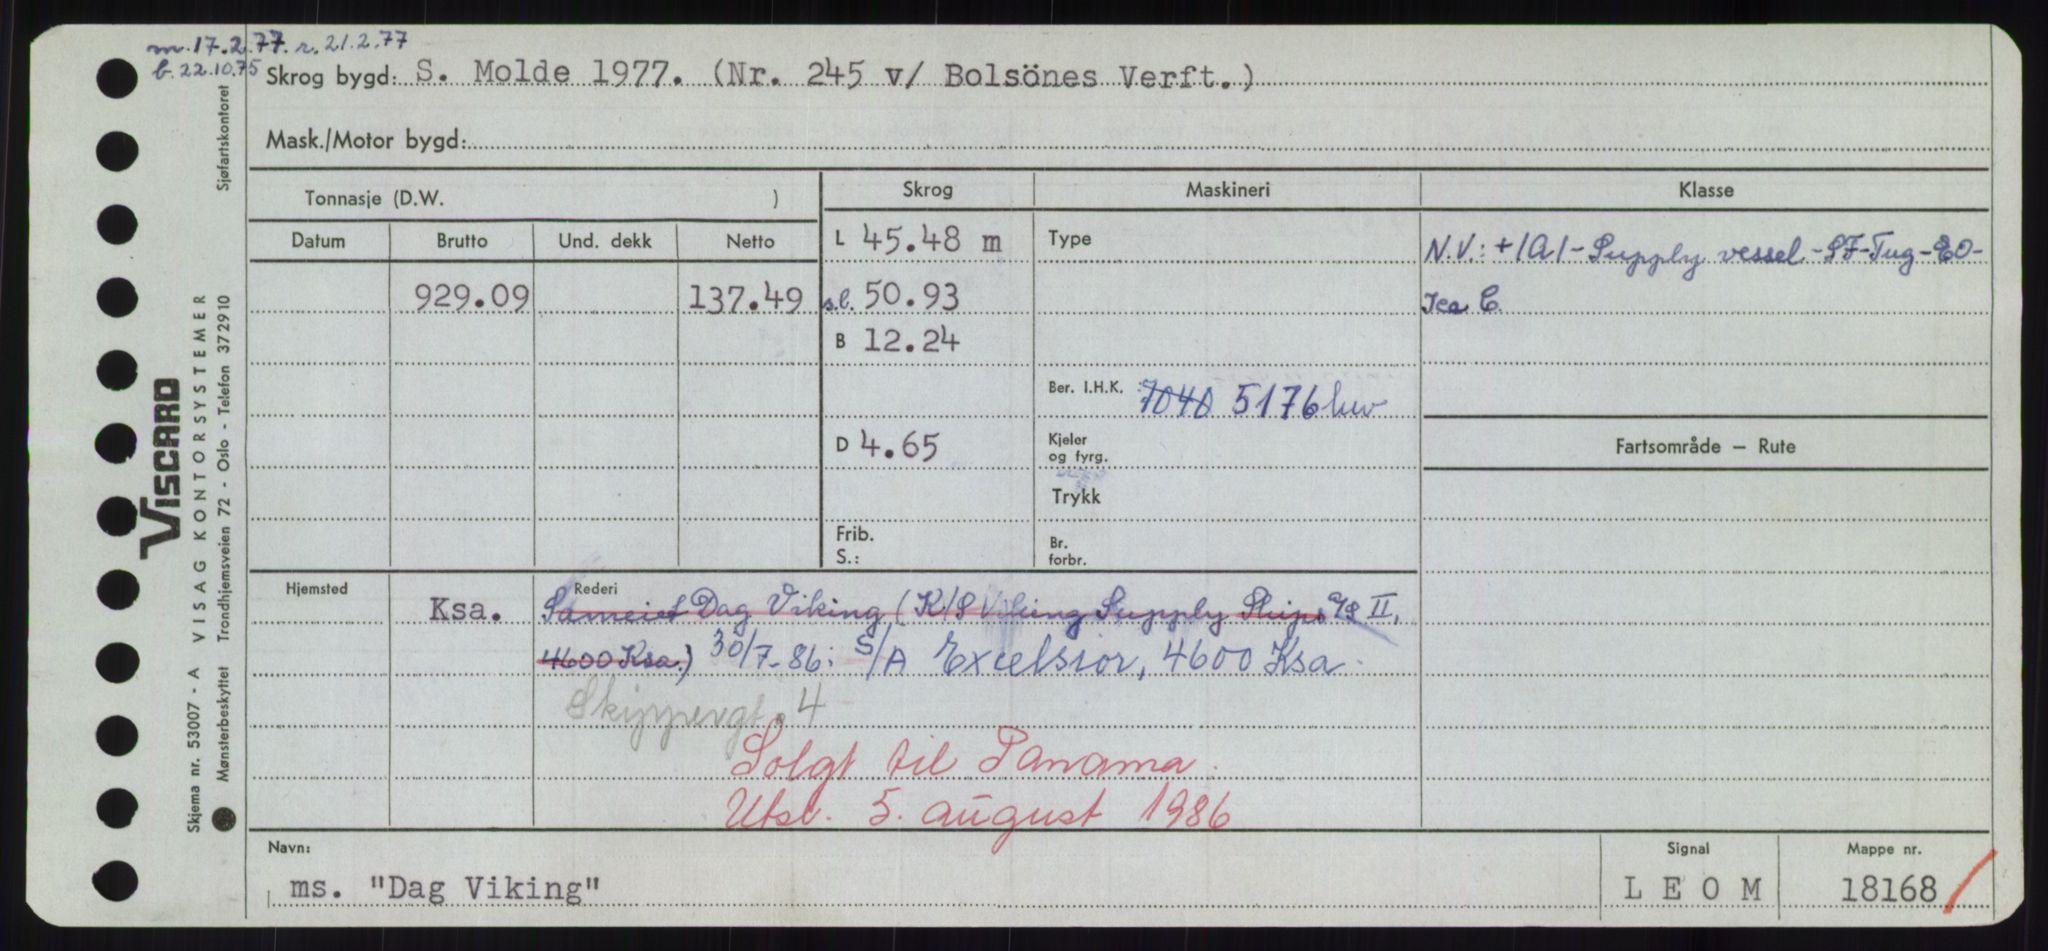 m. 17.2.77. r. 21.2.77
b. 22.10.75
Skrog bygd: S. Molde 1977. (Nr. 245 v/ Bolsönes Verft.)
Mask./Motor bygd:
Tonnasje (D.W. )
Skrog Maskineri Klasse
Datum Brutto Und. dekk Netto
L 45.48 m
Type
N.V.: +1A1-Supply vessel-SF-Tug-EO-
Ice C.
929.09 137.49
s.l. 50.93
B 12.24
Ber. I.H.K. 7040 5176 hw
D 4.65
Kjeler
og fyrg.
Fartsområde – Rute
Trykk
Frib.
S.:
Br.
forbr.
Hjemsted
Ksa.
Rederi
Sameiet Dag Viking (K/S Viking Supply Ships A/S II,
4600 Ksa.) 30/7-86: S/A Excelsior, 4600 Ksa.
Skippergt. 4
Solgt til Panama.
Utsl. 5. august 1986
Navn:
ms. "Dag Viking"
Signal
L E O M
Mappe nr.
18168
Skjema nr. 53007 - A VISAG KONTORSYSTEMER
VISCARD
Mønsterbeskyttet Trondhjemsveien 72 - Oslo - Telefon 37 29 10
Sjøfartskontoret